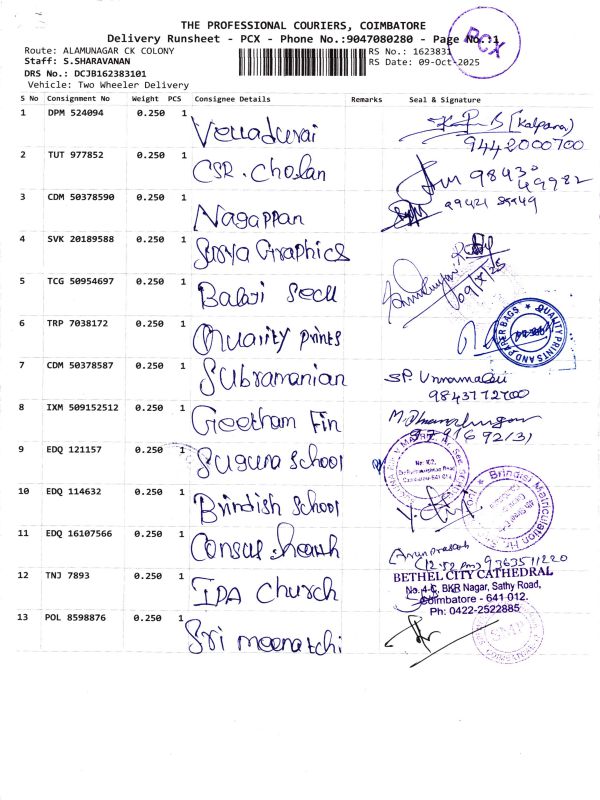 THE PROFESSIONAL COURIERS, COIMBATORE
Delivery Runsheet - PCX - Phone No.:9047080280 - Page No.:1
PCX
Route: ALAMUNAGAR CK COLONY
RS No.: 1623831
Staff: S.SHARAVANAN
RS Date: 09-Oct-2025
DRS No.: DCJB162383101
Vehicle: Two Wheeler Delivery
S No Consignment No Weight PCS Consignee Details Remarks Seal & Signature
1 DPM 524094 0.250 1 (Kalpana)
9442000700
2 TUT 977852 0.250 1 CSR. Cholan
3 CDM 50378590 0.250 1 Nagappan
4 SVK 20189588 0.250 1 Surya Graphics
5 TCG 50954697 0.250 1 Balaji
6 TRP 7038172 0.250 1 Quality prints
QUALITY PRINTS AND PAPER BAGS
7 CDM 50378587 0.250 1 Subramanian
8 IXM 509152512 0.250 1 Geetham Fin
9 EDQ 121157 0.250 1 Suguna School
10 EDQ 114632 0.250 1 Brindish School
11 EDQ 16107566 0.250 1
12 TNJ 7893 0.250 1 IPA Church
BETHEL CITY CATHEDRAL
No. 4-C, BKR Nagar, Sathy Road,
Coimbatore - 641 012.
Ph: 0422-2522885
13 POL 8598876 0.250 1 Sri meenatchi
SMP